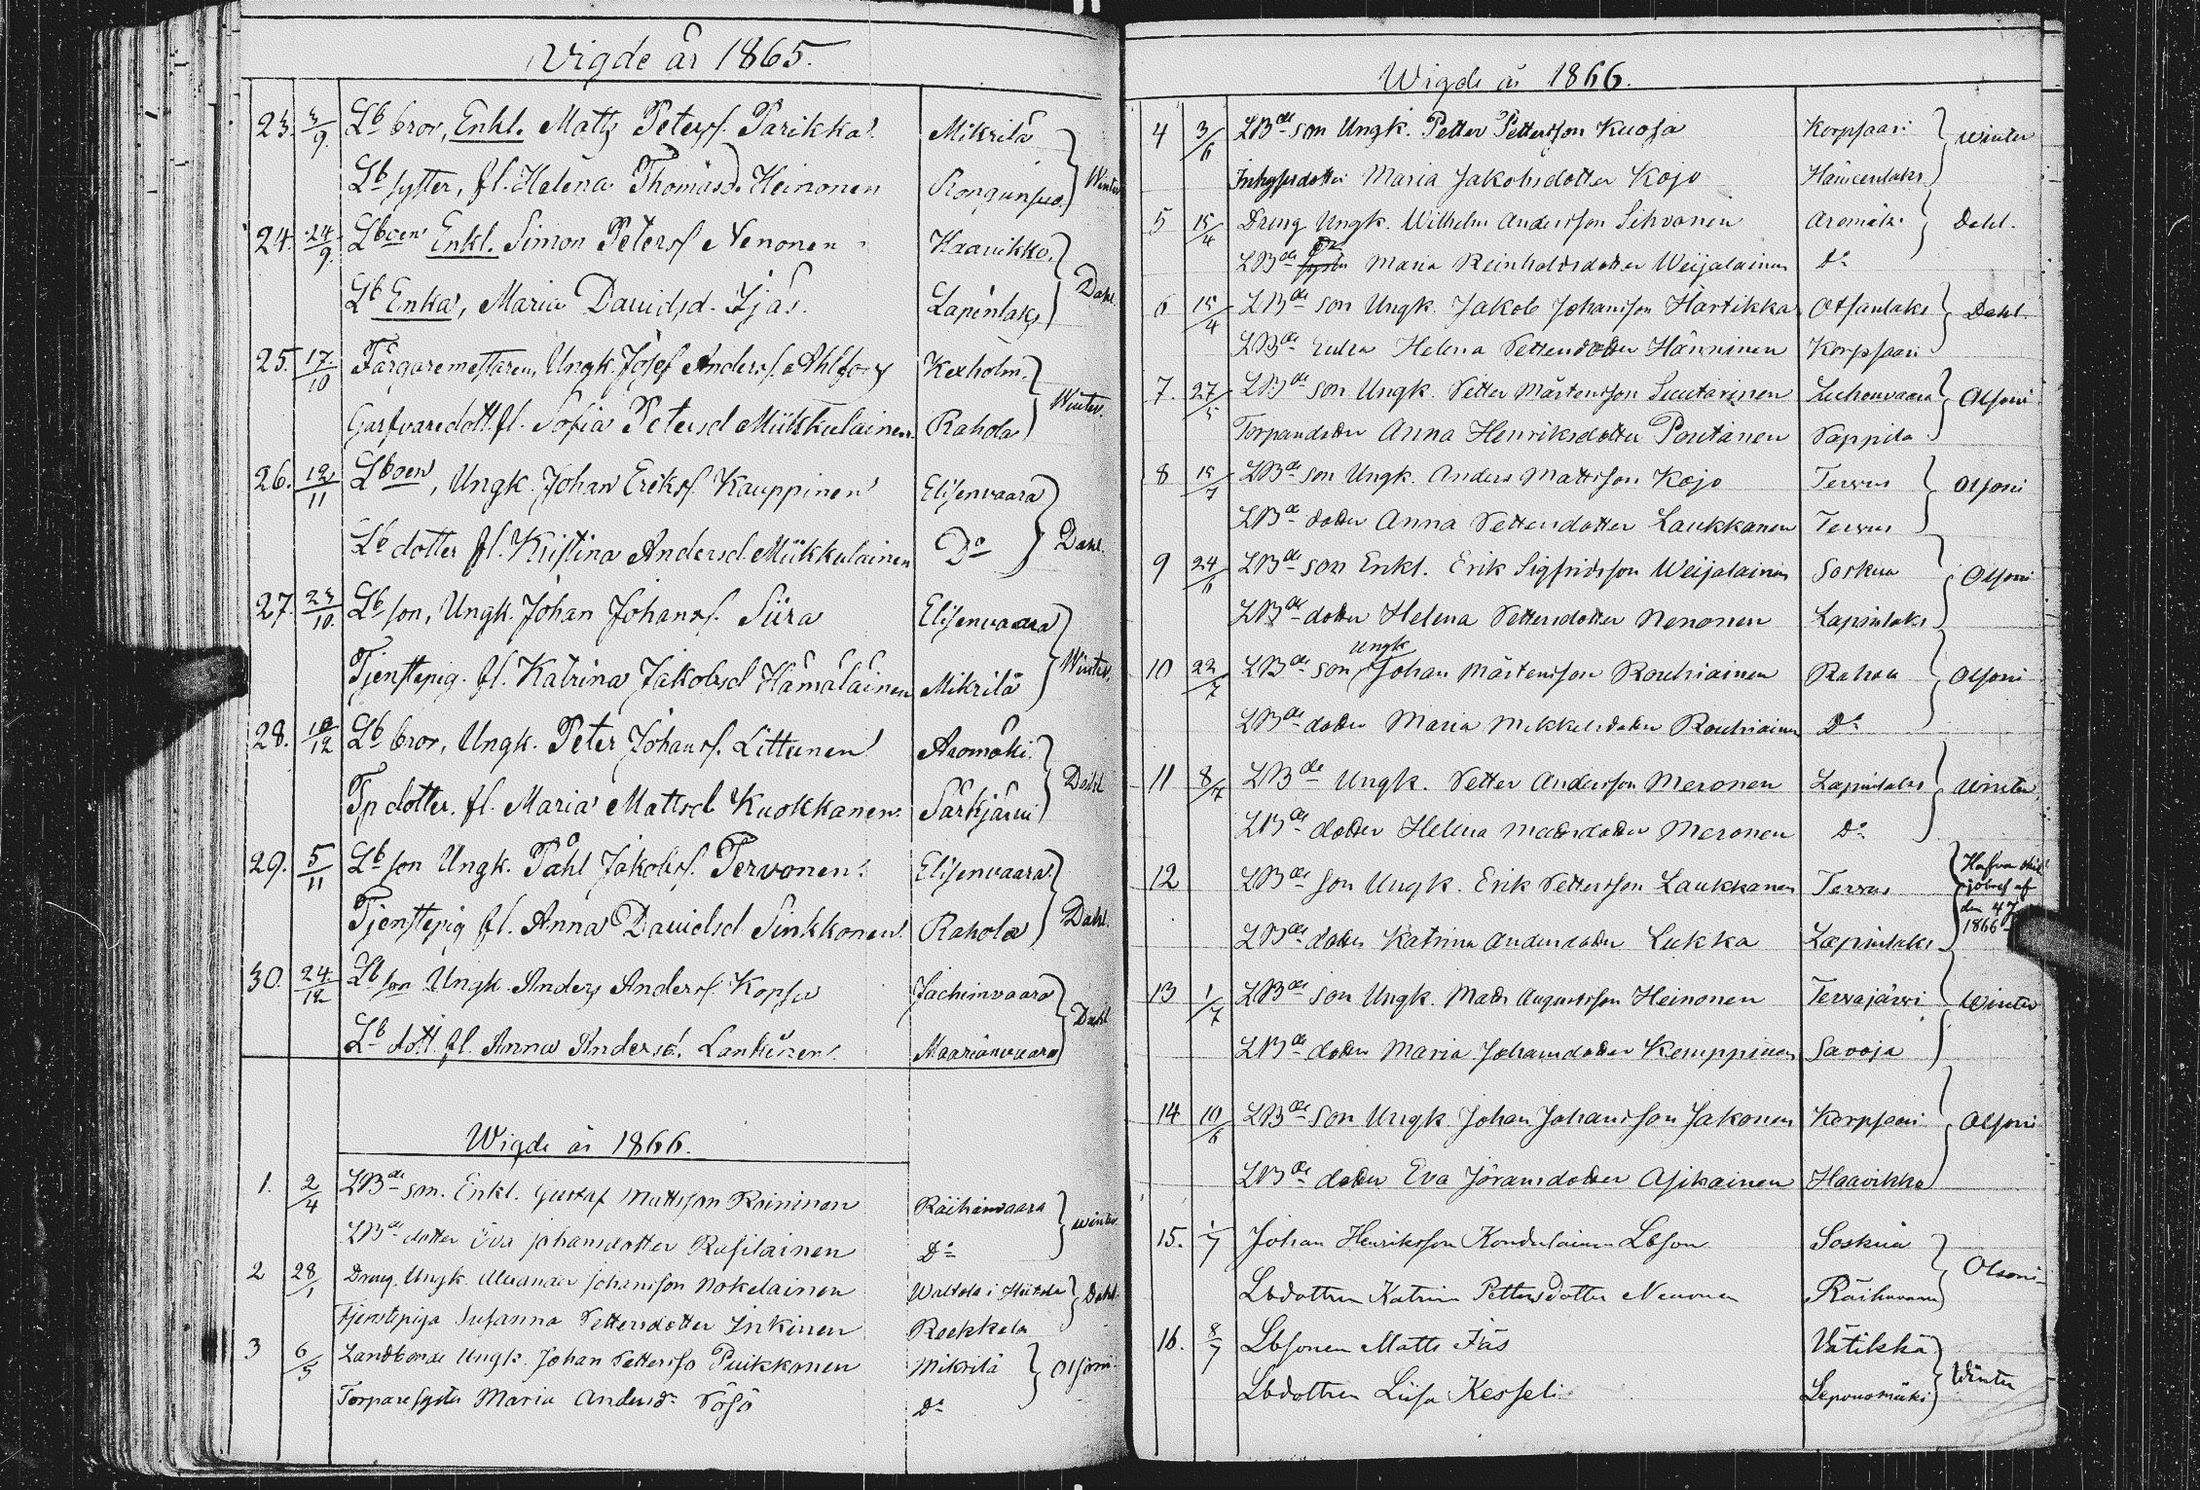 Vigde år 1865.
23. 3/9. Lb bror, Enkl. Matts Petersf. Parikka Mikrilä
Lb syster, fl. Helena Thomasd. Heinonen Rongunsuo Winter
24. 24/9. Lboen Enkl. Simon Petersf. Nenonen Haavikko
Lb Enka, Maria Davidsd. Ijäs. Lapinlaks Dahl.
25. 17/10 Färgaremestaren, Ungk. Josef Andersf. Ahlfors Kexholm.
Garfvaredott. fl. Sofia Petersd Miikkulainen Rahola Winter.
26. 12/11 Lboen, Ungk. Johan Eriksf. Kauppinen Elisenvaara
Lb dotter fl. Kristina Andersd. Miikkulainen Do Dahl.
27. 23/10. Lb son, Ungk. Johan Johansf. Siira Elisenvaara
Tjenstepig. fl. Katrina Jakobsd Hämäläinen Mikrilä Winter.
28. /12 Lb bror, Ungk. Peter Johansf. Littunen Aromäki.
Tp dotter. fl. Maria Mattsd Kuokkanen Särkjärvi Dahl
29. 5/11 Lb son Ungk. Påhl Jakobsf. Tervonen Elisenvaara
Tjenstepig fl. Anna Davidsd Sinkkonen Rahola Dahl.
30. 24/12 Lb son Ungk. Anders Andersf. Kopsa Jachinvaara
Lb dott. fl. Anna Andersd. Lankinen Maarianvaara Dahl
Wigde år 1866.
1. 2/4 LBde son. Enkl. Gustaf Mattsson Roininen Räihänvaara
LBde dotter Eva Johansdotter Rasilainen Do Winter
2 28/1 Dreng. Ungk. Alexander Johansson Nokelainen Waltola i Hiitola
Tjenstepiga Susanna Pettersdotter Inkinen Rockkola Dahl
3 6/5 Landbonde Ungk. Johan Petterss Puikkonen Mikrilä
Torparesyster Maria Andersdr Pösö Do Olsoni
Wigde år 1866.
4 3/6 LBde son Ungk. Petter Pettersson Kuosa Korpsaari
Inhysesdotter Maria Jakobsdotter Kojo Hännenlaks Winter
5 15/4 Dreng Ungk. Wilhelm Andersson Sihvonen Aromäki
LBde dr Maria Reinholdsdotter Weijalainen Do Dahl.
6 15/4 LBde son Ungk. Jakob Johansson Härtikka Otsanlaks
LBde Enka Helena Pettersdotter Hänninen Korpsaari Dahl.
7. 27/5 LBde son Ungk. Petter Mårtensson Suutarinen Luhonvaara
Torparedotter Anna Henriksdotter Poutanen Soppila Olsoni
8 15/7 LBde son Ungk. Anders Mattsson Kojo Tervus
LBde dotter Anna Pettersdotter Laukkanen Tervus Olsoni
9 24/6 LBde son Enkl. Erik Sigfridsson Weijalainen Soskua
LBde dotter Helena Pettersdotter Nenonen Lapinlaks Olsoni
10 22/7 LBde son Ungk Johan Mårtensson Rouhiainen Rahola
LBde dotter Maria Mickelsdotter Rouhiainen Do Olsoni
11 8/7 LBde Ungk. Petter Andersson Meronen Lapinlaks
LBde dotter Helena Matsdotter Meronen Do Winter
12 LBde son Ungk. Erik Pettersson Laukkanen Tervus
LBde dotter Katrina Andersdotter Lukka Lapinlaks
den 4/7 1866
13 1/7 LBde son Ungk. Mats Augustsson Heinonen Tervajärvi
LBde dotter Maria Johansdotter Kemppinen Savoja Winter
14 10/6 LBde son Ungk. Johan Johansson Jakonen Korpsaari
LBde dotter Eva Jöransdotter Asikainen Haavikko Olsoni
15. 1/7 Johan Henriksson Kondulainen Lbson Soskua
Lbdottren Katrin Pettersdotter Nenonen Räihävaara Olsoni
16. 8/7 Lbsonen Matts Ijäs Vätikkä
Lbdottren Liisa Kesseli Leponomäki Winter